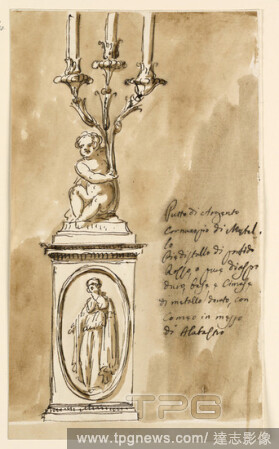 Putto di Argento
Cornucopio di Metal
lo
Piedistallo di porfido
Rosso, o pure diaspro
duro, base e Cimasa
di metallo dorato, con
Cameo in mezzo
di Alabastro
TPG
www.tpgnews.com / 達志影像